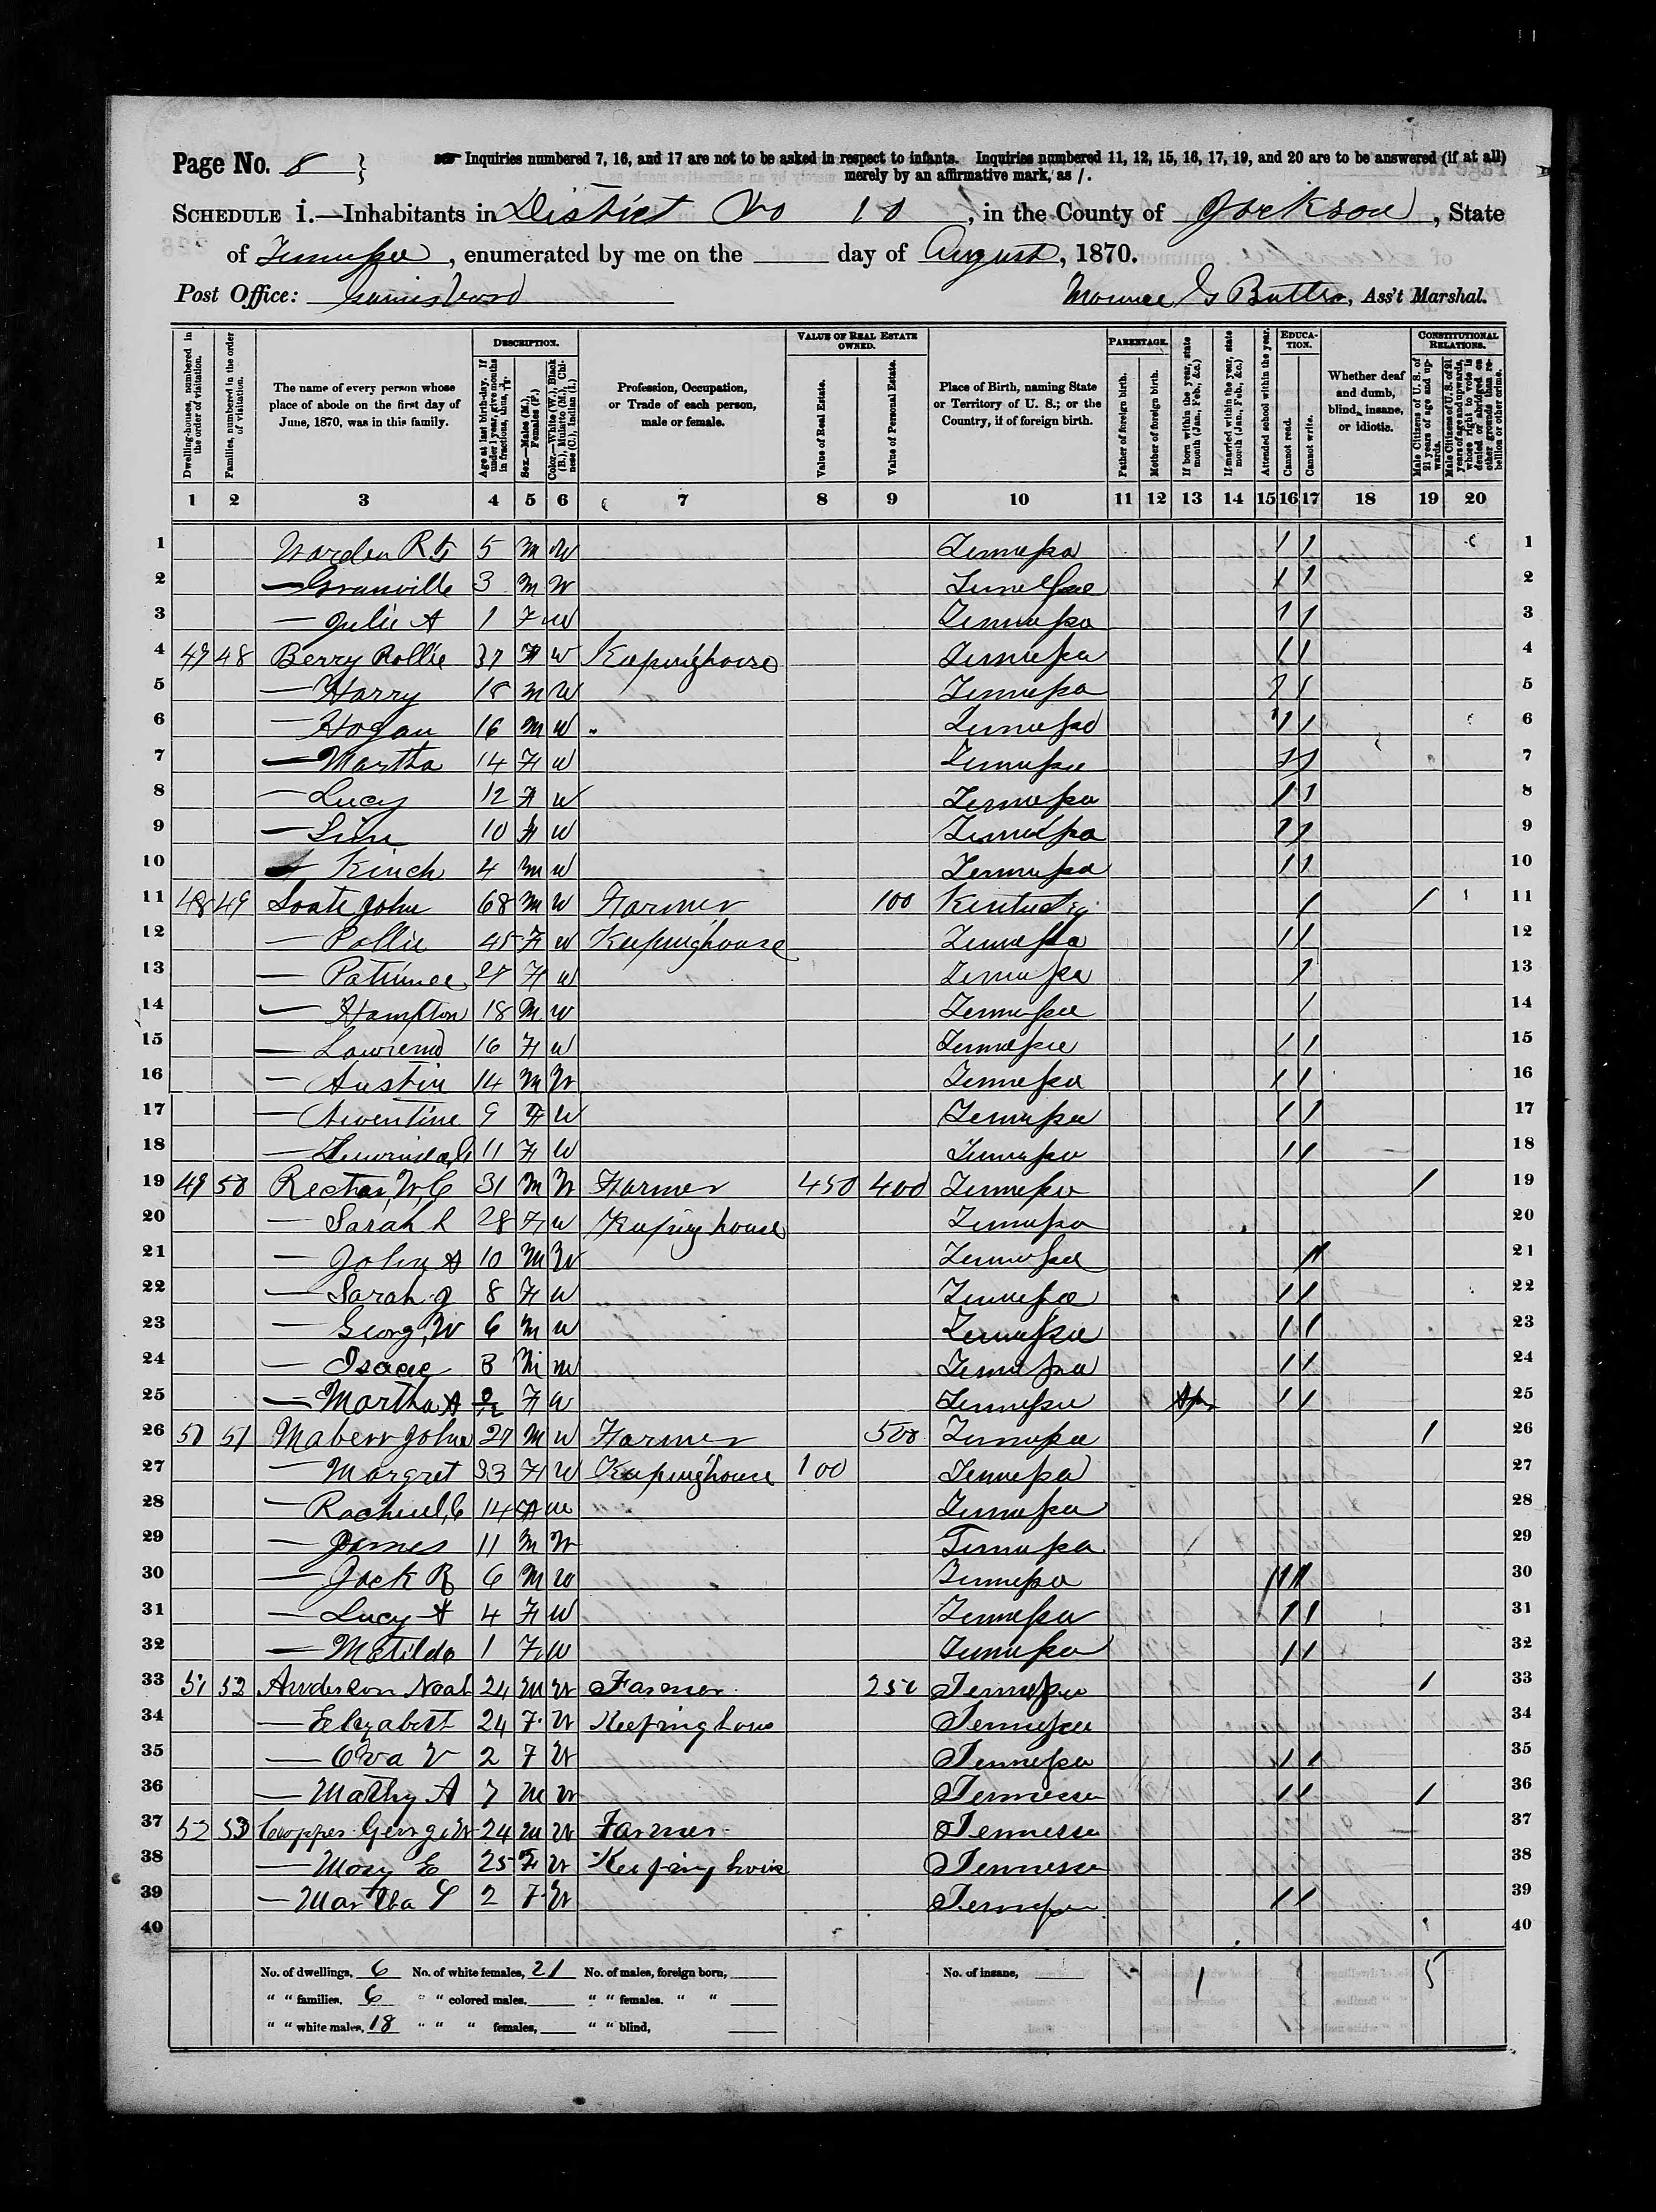 Page No. 8 }
Inquiries numbered 7, 16, and 17 are not to be asked in respect to infants. Inquiries numbered 11, 12, 15, 16, 17, 19, and 20 are to be answered (if at all)
merely by an affirmative mark, as /.
SCHEDULE 1.—Inhabitants in District No 10, in the County of Jackson, State
of Tennessee, enumerated by me on the ____ day of August, 1870.
Post Office: Gainisboro
Butler, Ass't Marshal.
Dwelling-houses, numbered in the order of visitation.
Families, numbered in the order of visitation.
The name of every person whose place of abode on the first day of June, 1870, was in this family.
DESCRIPTION.
Age at last birth-day. If under 1 year, give months in fractions, thus, 3/12.
Sex.—Males (M.), Females (F.)
Color.—White (W.), Black (B.), Mulatto (M.), Chinese (C.), Indian (I.)
Profession, Occupation, or Trade of each person, male or female.
VALUE OF REAL ESTATE OWNED.
Value of Real Estate.
Value of Personal Estate.
Place of Birth, naming State or Territory of U. S.; or the Country, if of foreign birth.
PARENTAGE.
Father of foreign birth.
Mother of foreign birth.
If born within the year, state month (Jan., Feb., &c.)
If married within the year, state month (Jan., Feb., &c.)
Attended school within the year.
EDUCATION.
Cannot read.
Cannot write.
Whether deaf and dumb, blind, insane, or idiotic.
CONSTITUTIONAL RELATIONS.
Male Citizens of U. S. of 21 years of age and upwards.
Male Citizens of U. S. of 21 years of age and upwards, whose right to vote is denied or abridged on other grounds than rebellion or other crime.
1 2 3 4 5 6 7 8 9 10 11 12 13 14 15 16 17 18 19 20
1 Warden R G 5 M W Tennessee / / 1
2 — Granville 3 M W Tennessee / / 2
3 — Julie A 1 F W Tennessee / / 3
4 49 48 Berry Pollie 37 F W Keepinghouse Tennessee / / 4
5 — Harry 18 M W Tennessee / / 5
6 — Hogan 16 M W Tennessee / / 6
7 — Martha 14 F W Tennessee / / 7
8 — Lucy 12 F W Tennessee / / 8
9 — 10 F W Tennessee / / 9
10 — Kinch 4 M W Tennessee / / 10
11 48 49 John 68 M W Farmer 100 Kentucky / / 11
12 — Pollie 45 F W Keepinghouse Tennessee / / 12
13 — 27 F W Tennessee / 13
14 — Hampton 18 M W Tennessee / 14
15 — 16 F W Tennessee / / 15
16 — Austin 14 M W Tennessee / / 16
17 — 9 F W Tennessee / / 17
18 — 11 F W Tennessee / / 18
19 49 50 Rector, W, C 31 M W Farmer 450 400 Tennessee / 19
20 — Sarah L 28 F W Keeping house Tennessee 20
21 — John A 10 M W Tennessee / 21
22 — Sarah J 8 F W Tennessee / / 22
23 — Georg, W 6 M W Tennessee / / 23
24 — Isaac 3 M W Tennessee / / 24
25 — Martha A 2/12 F W Tennessee Apr / / 25
26 50 51 John 27 M W Farmer 500 Tennessee / 26
27 — Margret 33 F W Keepinghouse 100 Tennessee 27
28 — Rachiel, C 14 F W Tennessee 28
29 — James 11 M W Tennessee 29
30 — Jack R 6 M W Tennessee / / / 30
31 — Lucy A 4 F W Tennessee / / 31
32 — Matilda 1 F W Tennessee / / 32
33 51 52 Anderson Noah 24 M W Farmer 250 Tennessee / 33
34 — Elizabeth 24 F W Keeping hous Tennessee 34
35 — Ova V 2 F W Tennessee / / 35
36 — Mathy A 7 M W Tennessee / / / 36
37 52 53 George W 24 M W Farmer Tennessee 37
38 — Mary E 25 F W Keeping house Tennessee 38
39 — Martha 2 F W Tennessee / / 39
40 40
No. of dwellings, 6 No. of white females, 21 No. of males, foreign born, No. of insane, 1 5
" " families, 6 " " colored males, " " females, " "
" " white males, 18 " " " females, " " blind,